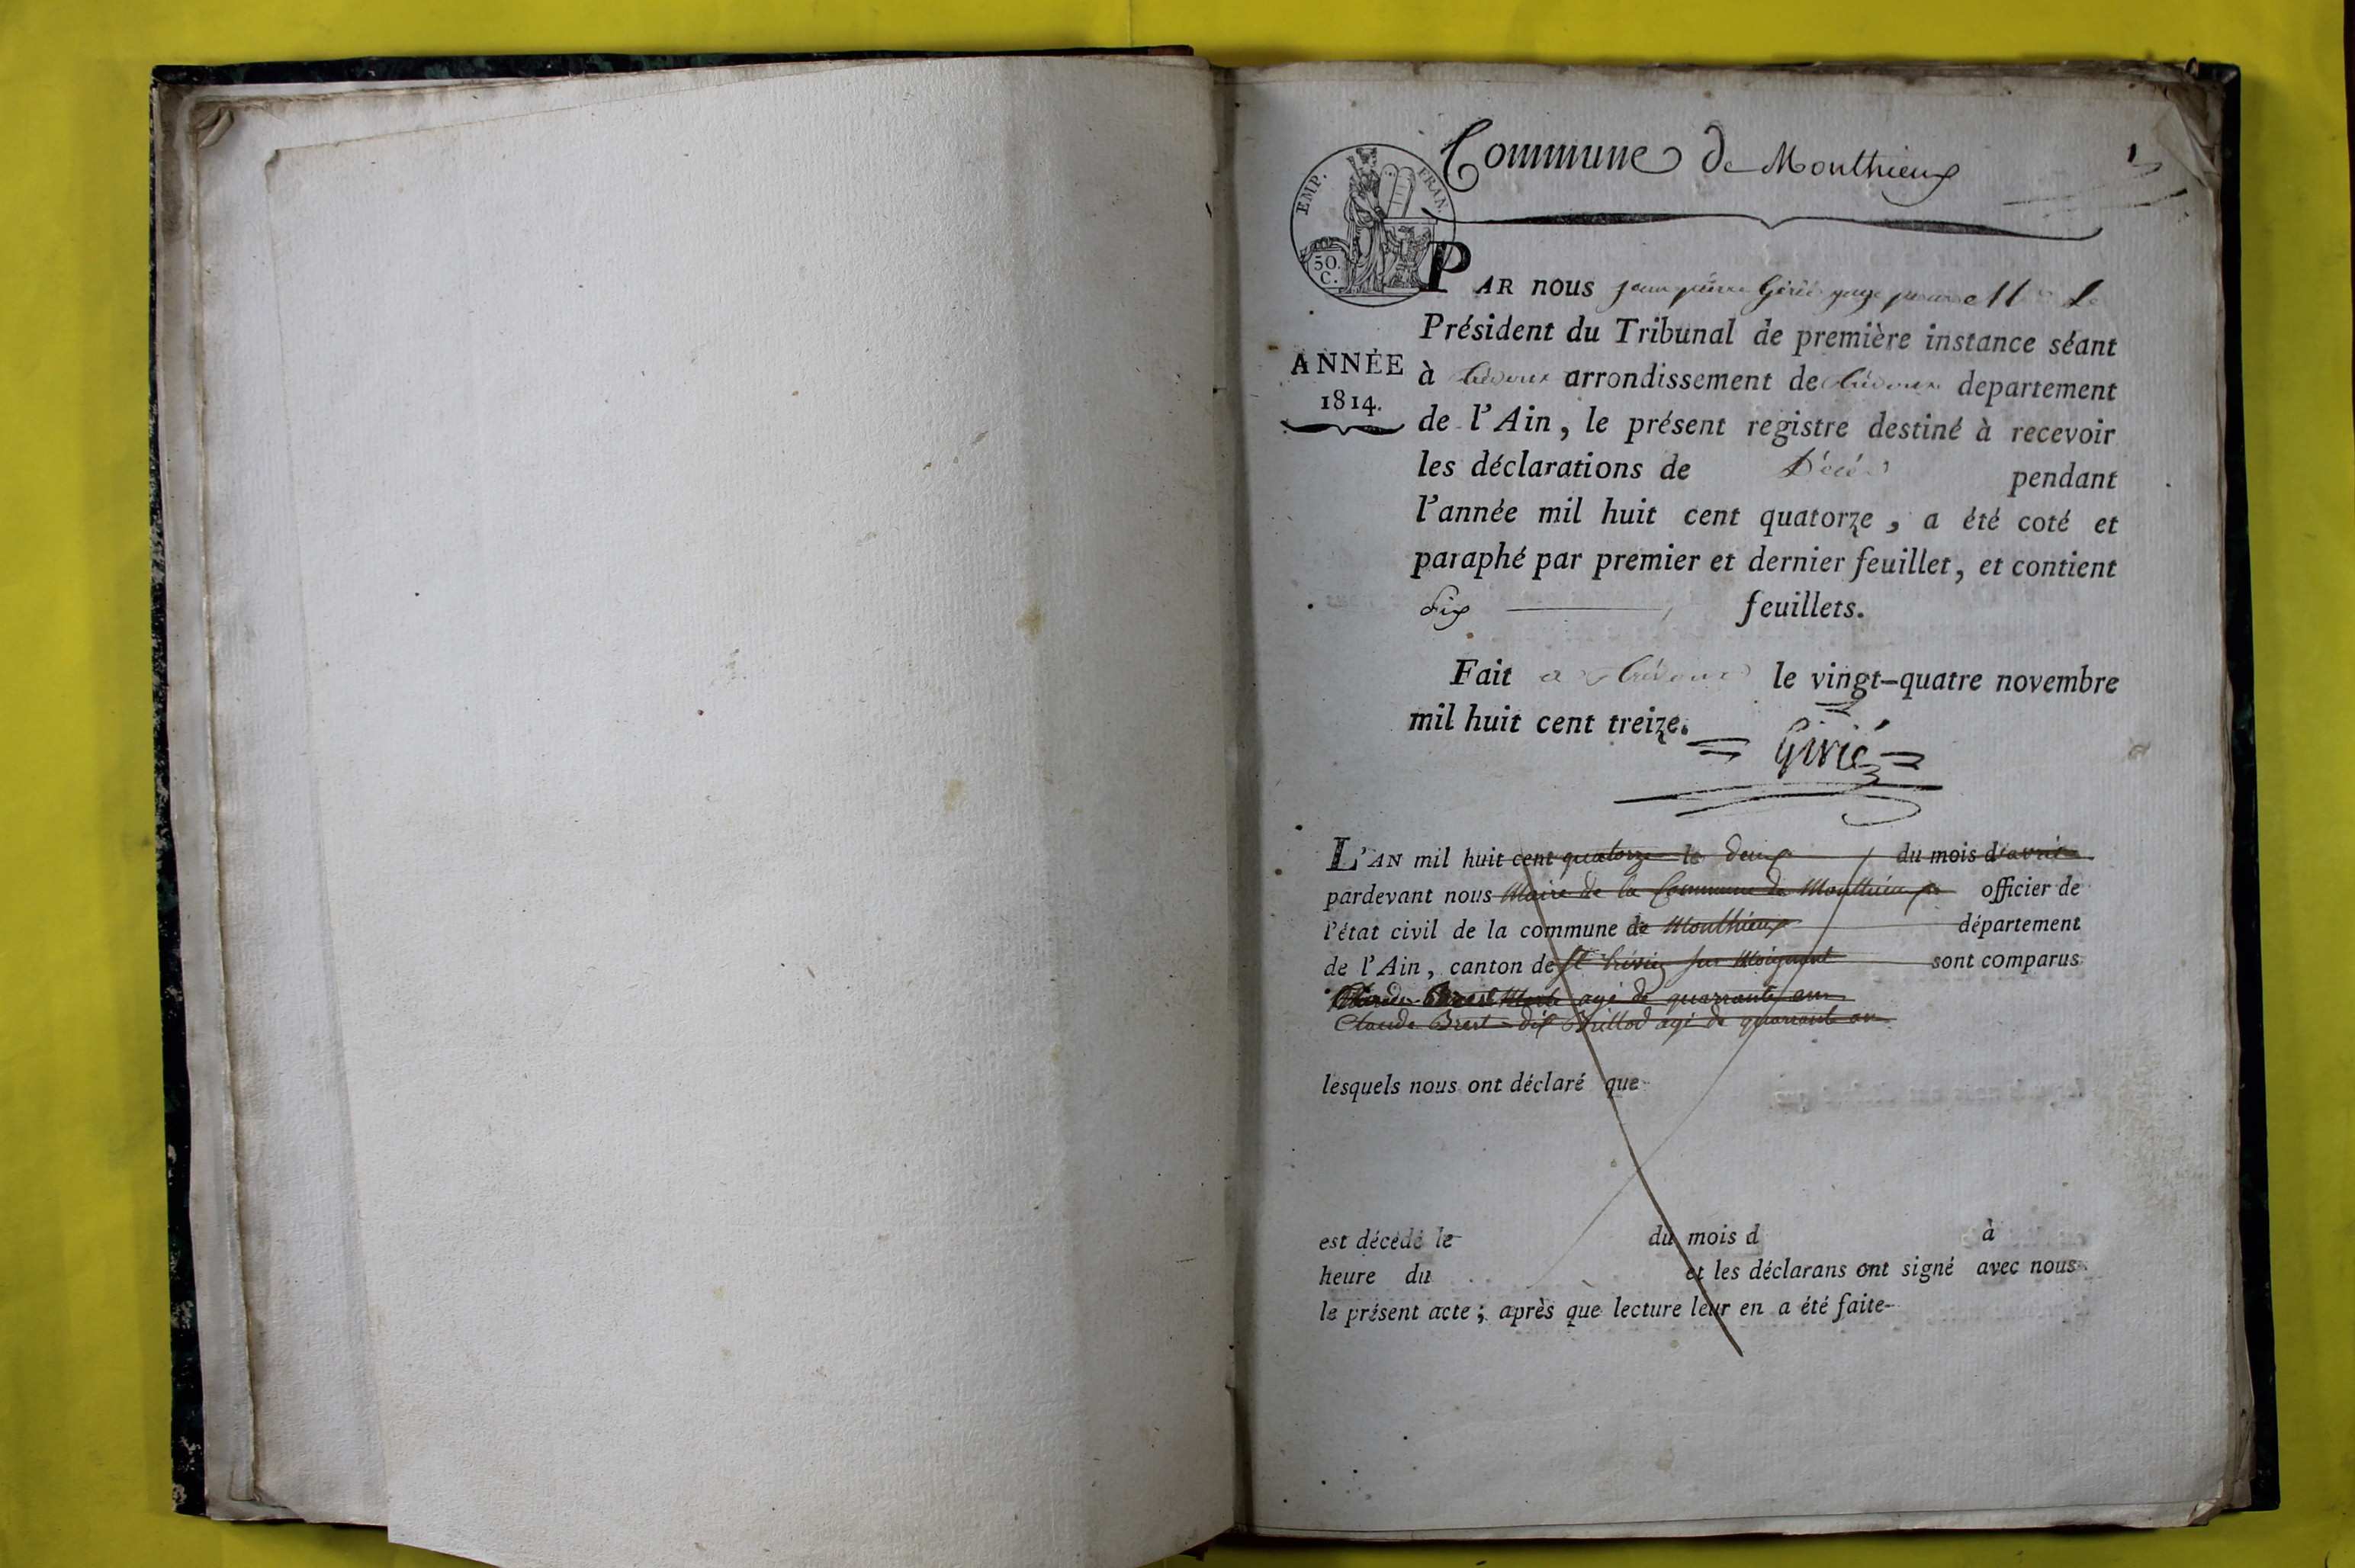 Commune de Monthieux
1
EMP. FRAN.
50.
C.
PAR nous jean pierre Girié juge pour Mr Le
Président du Tribunal de première instance séant
ANNÉE
1814.
à trévoux arrondissement de trévoux departement
de l'Ain, le présent registre destiné à recevoir
les déclarations de Décès pendant
l'année mil huit cent quatorze, a été coté et
paraphé par premier et dernier feuillet, et contient
Six feuillets.
Fait a trévoux le vingt-quatre novembre
mil huit cent treize.
Girié
L'AN mil huit cent quatorze le deux du mois d'avril
pardevant nous Maire de la Commune de Monthieux officier de
l'état civil de la commune de Monthieux département
de l'Ain, canton de St trivier sur Moignant sont comparus
agé de quarrante ans
Claude Brest dit agé de quarrante an
lesquels nous ont déclaré que
est décédé le du mois d à
heure du et les déclarans ont signé avec nous
le présent acte; après que lecture leur en a été faite